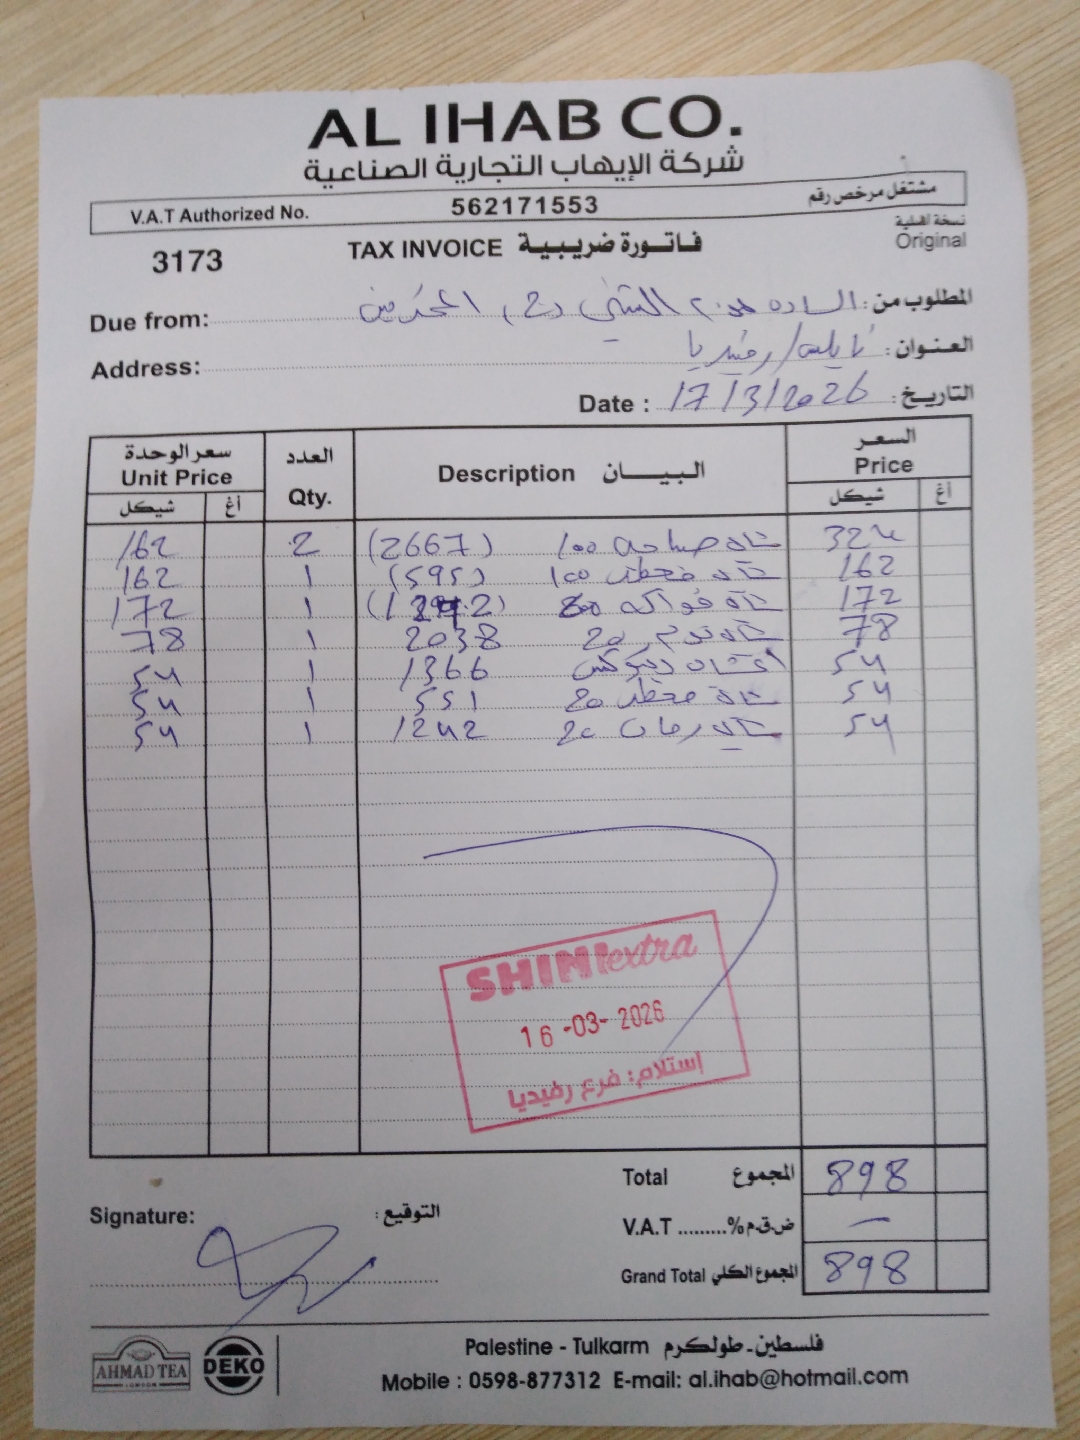 AL IHAB CO.
شركة الإيهاب التجارية الصناعية
V.A.T Authorized No. 562171553 مشتغل مرخص رقم
نسخة أصلية
Original
3173 TAX INVOICE فاتورة ضريبية
Due from: السادة المحترمين المطلوب من:
Address: نابلس/رفيديا العنوان:
Date : 17/3/2026 التاريخ:
سعر الوحدة العدد البيـــان السعر
Unit Price Qty. Description Price
شيكل أغ شيكل أغ
162 2 (2667) شاي 100 324
162 1 (595) شاي 100 162
172 1 شاي فواكه 172
78 1 2038 شاي 20 78
54 1 1366 54
54 1 551 شاي 20 54
54 1 1242 شاي رمان 20 54
SHINI extra
16-03-2026
إستلام: فرع رفيديا
Total المجموع 898
V.A.T .........% ض.ق.م —
Grand Total المجموع الكلي 898
Signature: التوقيع:
AHMAD TEA
LONDON
DEKO
Palestine - Tulkarm فلسطين - طولكرم
Mobile : 0598-877312 E-mail: al.ihab@hotmail.com